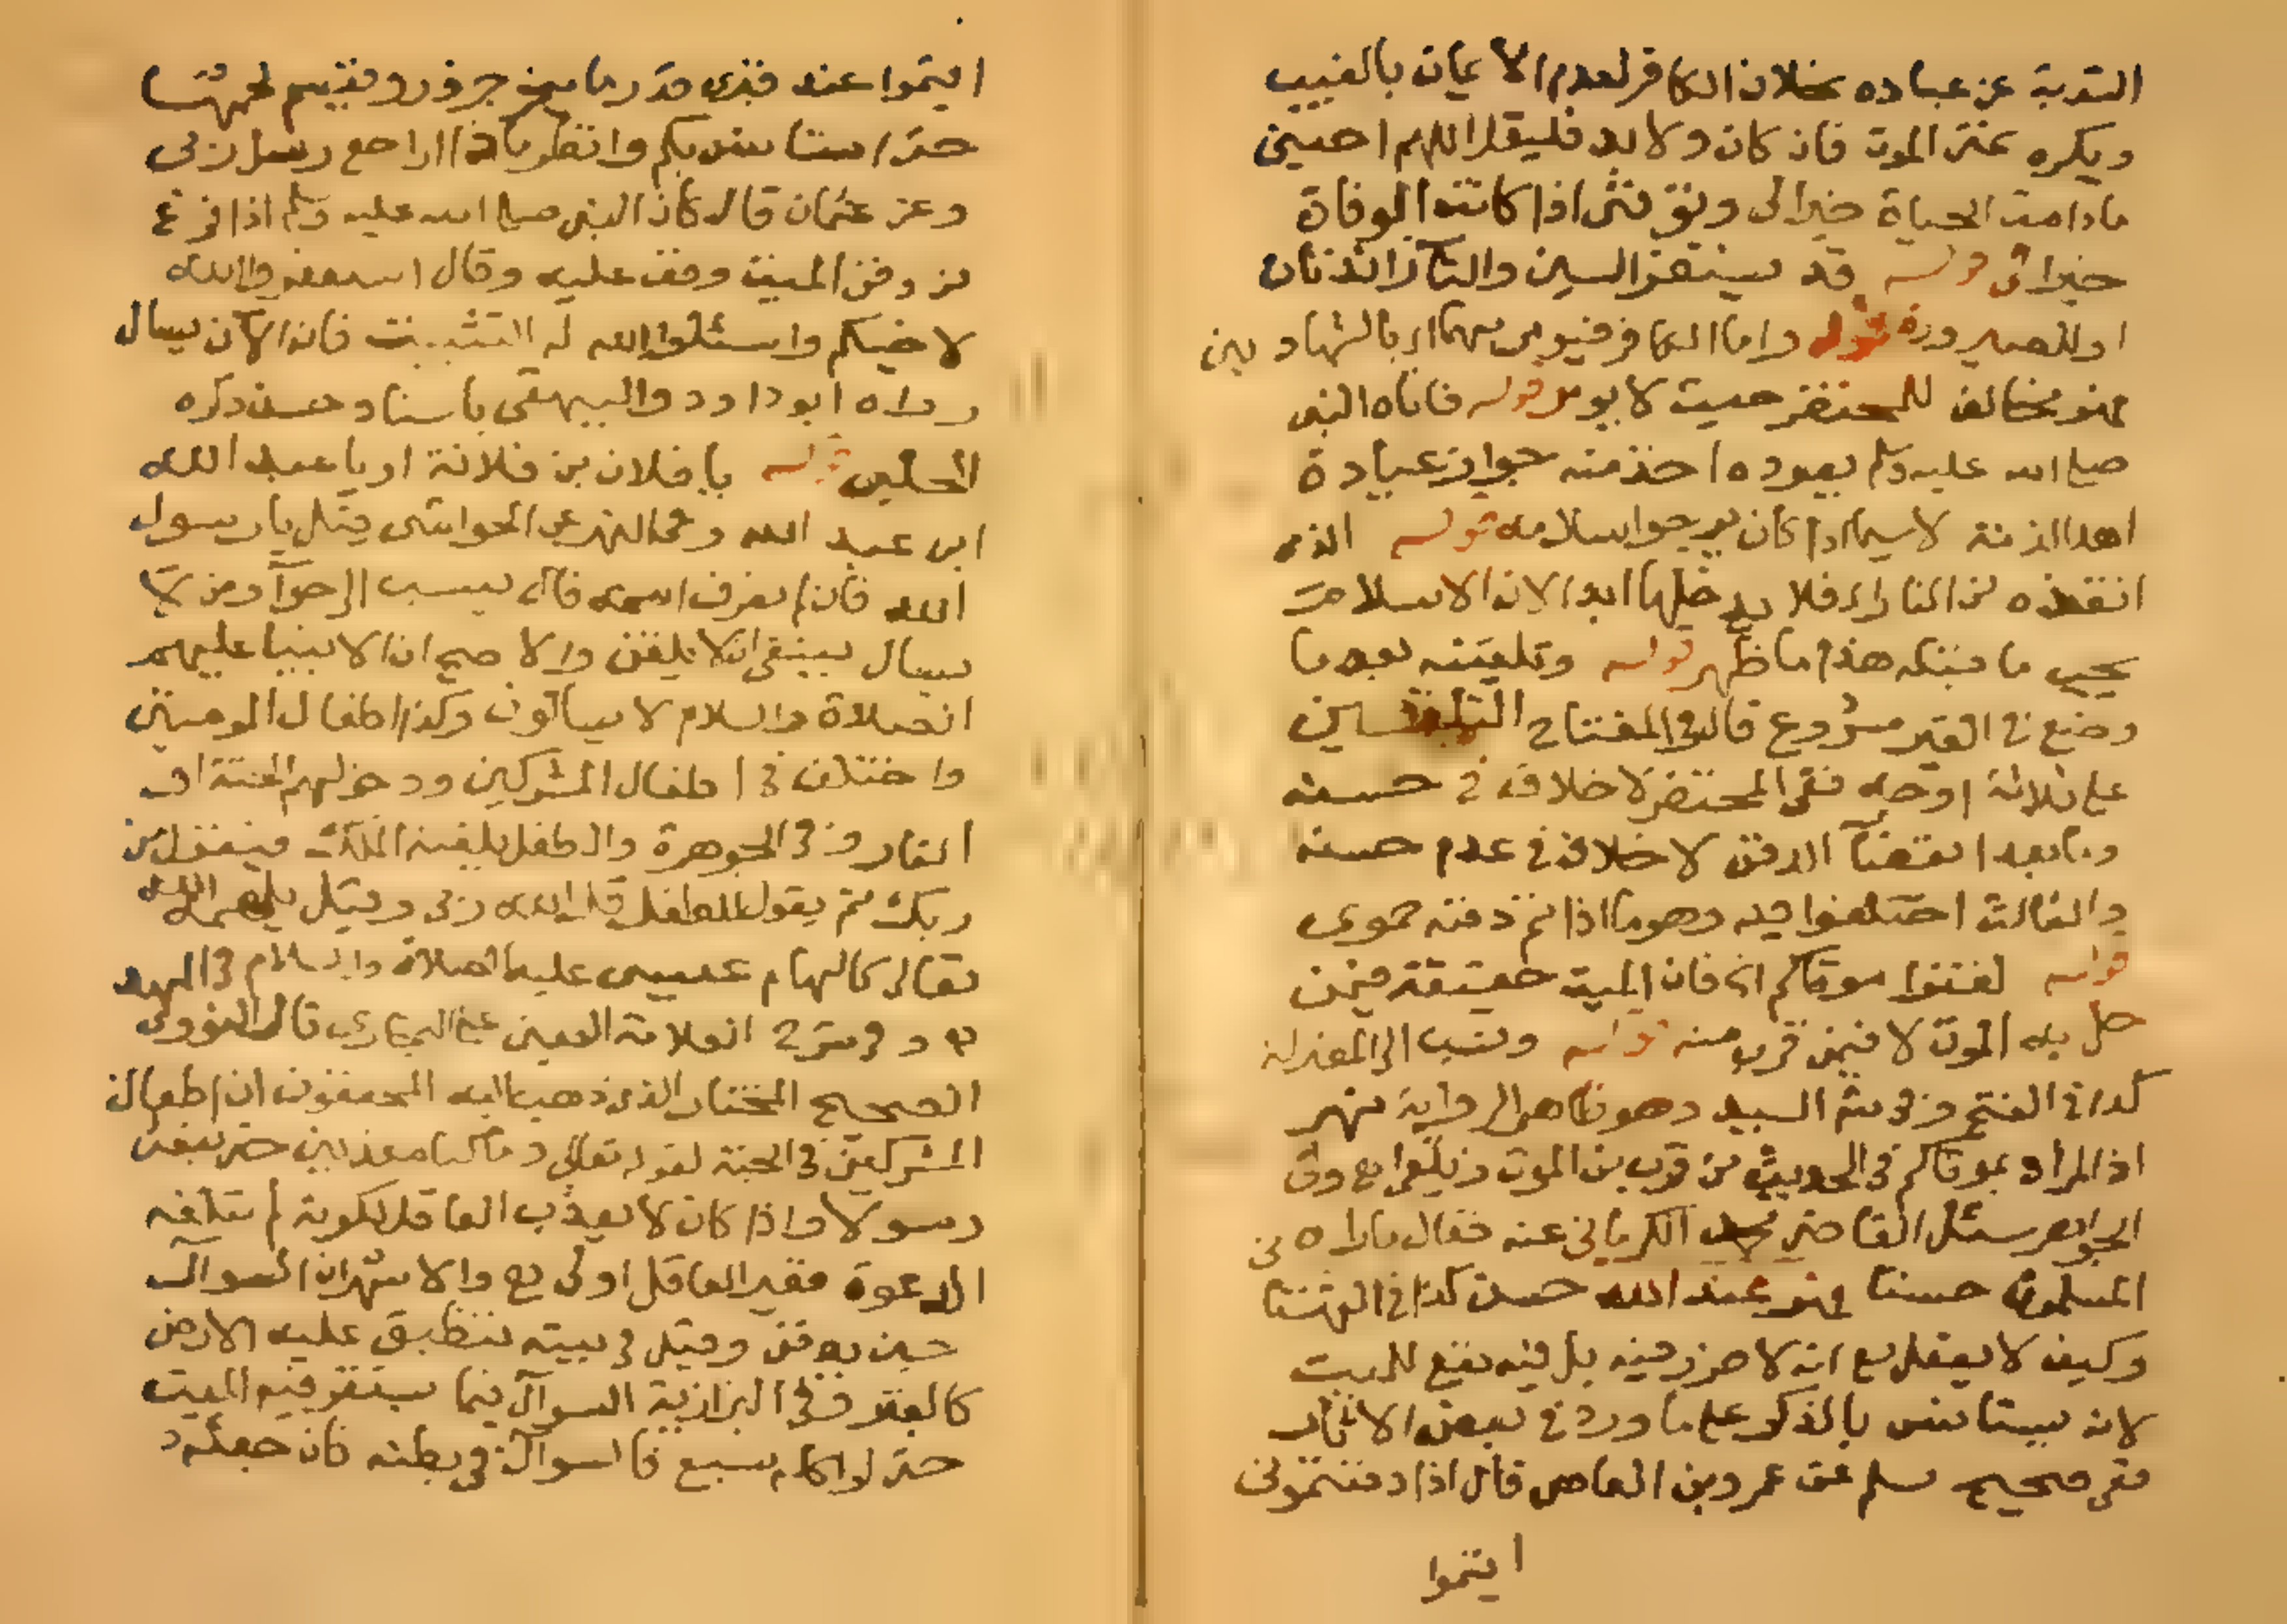 التوبة عن عباده بخلاف الكافر لعدم الايمان بالغيب
ويكره تمنى الموت فان كان ولا بد فليقل اللهم احينى
ما دامت الحياة خيرا لى وتوفنى اذا كانت الوفاة
خيرا لى قوله قد السين والتا زائدتان
او للصيرورة قوله واما الكافر فيومر بهما اى بالشهادتين
فهو مخالف للمحتضر حيث لا يومر قوله فاتاه النبى
صلى الله عليه وسلم يعوده اخذ منه جواز عيادة
اهل الذمة لاسيما اذا كان يرجوا سلامه قوله الذى
انقذه من النار اى فلا يدخلها ابدا لان الاسلام
يجب ما قبله هذا ما ظهر قوله وتلقينه بعد ما
وضع فى القبر مشروع قال فى المفتاح التلقين
على ثلاثة اوجه ففى المحتضر لا خلاف فى حسنه
وما بعد انقضآ الدفن لا خلاف فى عدم حسنه
والثالث اختلفوا فيه وهو ما اذا لم تم دفنه حموى
قوله لقنوا موتاكم اى فان الميت حقيقة فيمن
حل به الموت لا فيمن قرب منه قوله ونسب الى المعتزلة
كذا فى الفتح وفى السيد وهو ظاهر الرواية نهر
اذ المراد بموتاكم فى الحديث من قرب من الموت زيلعى وفى
الجواهر سئل القاضى الكرمانى عنه فقال ما راه
المسلمون حسنا فهو عند الله حسن كذا فى القهستا
وكيف لا يفعل مع انه لا ضرر فيه بل فيه نفع للميت
لانه يستانس بالذكر على ما ورد فى بعض الاثار
ففى صحيح مسلم عن عمرو بن العاص قال اذا دفنتمونى
اقيموا
اقيموا عند قبرى قدر ما ينحر جزور ويقسم لحمها
حتى استانس بكم وانظر ماذا اراجع رسل ربى
وعن عثمان قال كان النبى صلى الله عليه وسلم اذا فرغ
من دفن الميت وقف عليه وقال استغفروا الله
لاخيكم واسئلوا الله له التثبيت فانه الآن يسال
رواه ابو داود والبيهقى باسناد حسن ذكره
الحلبى قوله يا فلان بن فلانة او يا عبد الله
ابن عبد الله وفى النهر عن الحواشى قيل يا رسول
الله فان لم يعرف اسمه قال ينسب الى حوآ ومن لا
يسال ينبغى ان لا يلقن والاصح ان الانبيا عليهم
الصلاة والسلام لا يسالون وكذا اطفال المومنين
واختلف فى اطفال المشركين ودخولهم الجنة او
النار وفى الجوهرة والطفل يلقنه الملك فيقول من
ربك ثم يقول للطفل قل الله ربى وقيل يلهمه الله
تعالى كالهام عيسى عليه الصلاة والسلام فى المهد
وفى شرح العلامة العينى على البخارى قال النووى
الصحيح المختار الذى ذهب اليه المحققون ان اطفال
المشركين فى الجنة لقوله تعالى وما كنا معذبين حتى نبعث
رسولا واذا كان لا يعذب العاقل لكونه لم تبلغه
الدعوة فغير العاقل اولى والاشهر ان السوآل
حين يدفن وقيل فى بيته تنطبق عليه الارض
كالقبر وفى البزازية السوآل فيما يستقر فيه الميت
حتى لو اكله سبع فالسوآل فى بطنه فان جعل